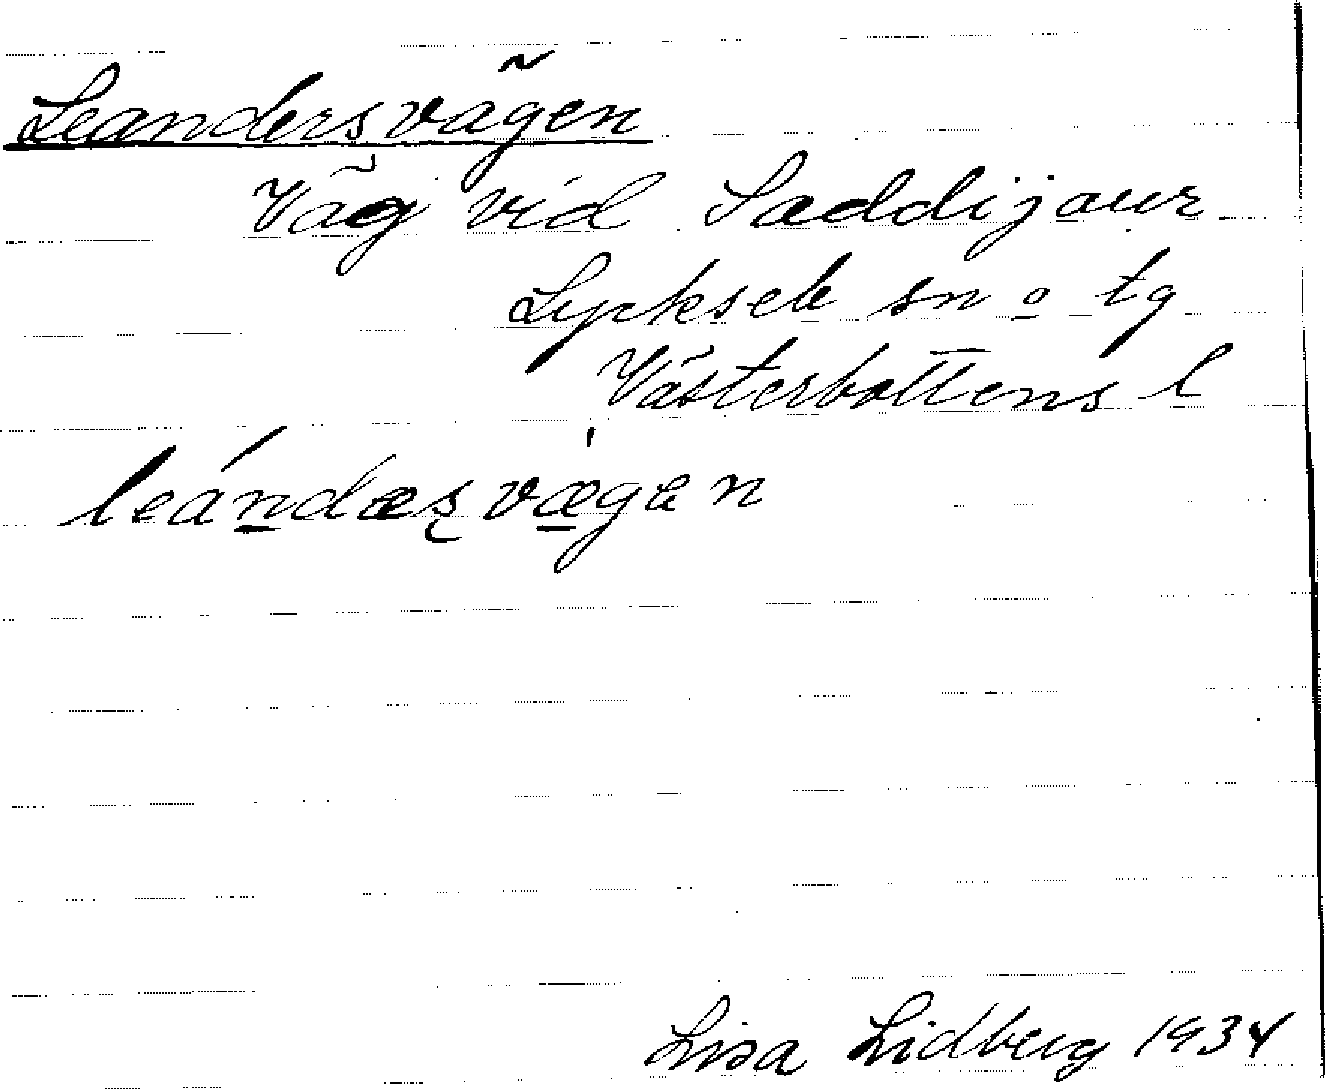 Leandersvägen
Väg vid Saddijaur
Lycksele sn o tg
Västerbottens l
leándæʂvæ̱gan
Lisa Lidberg 1934